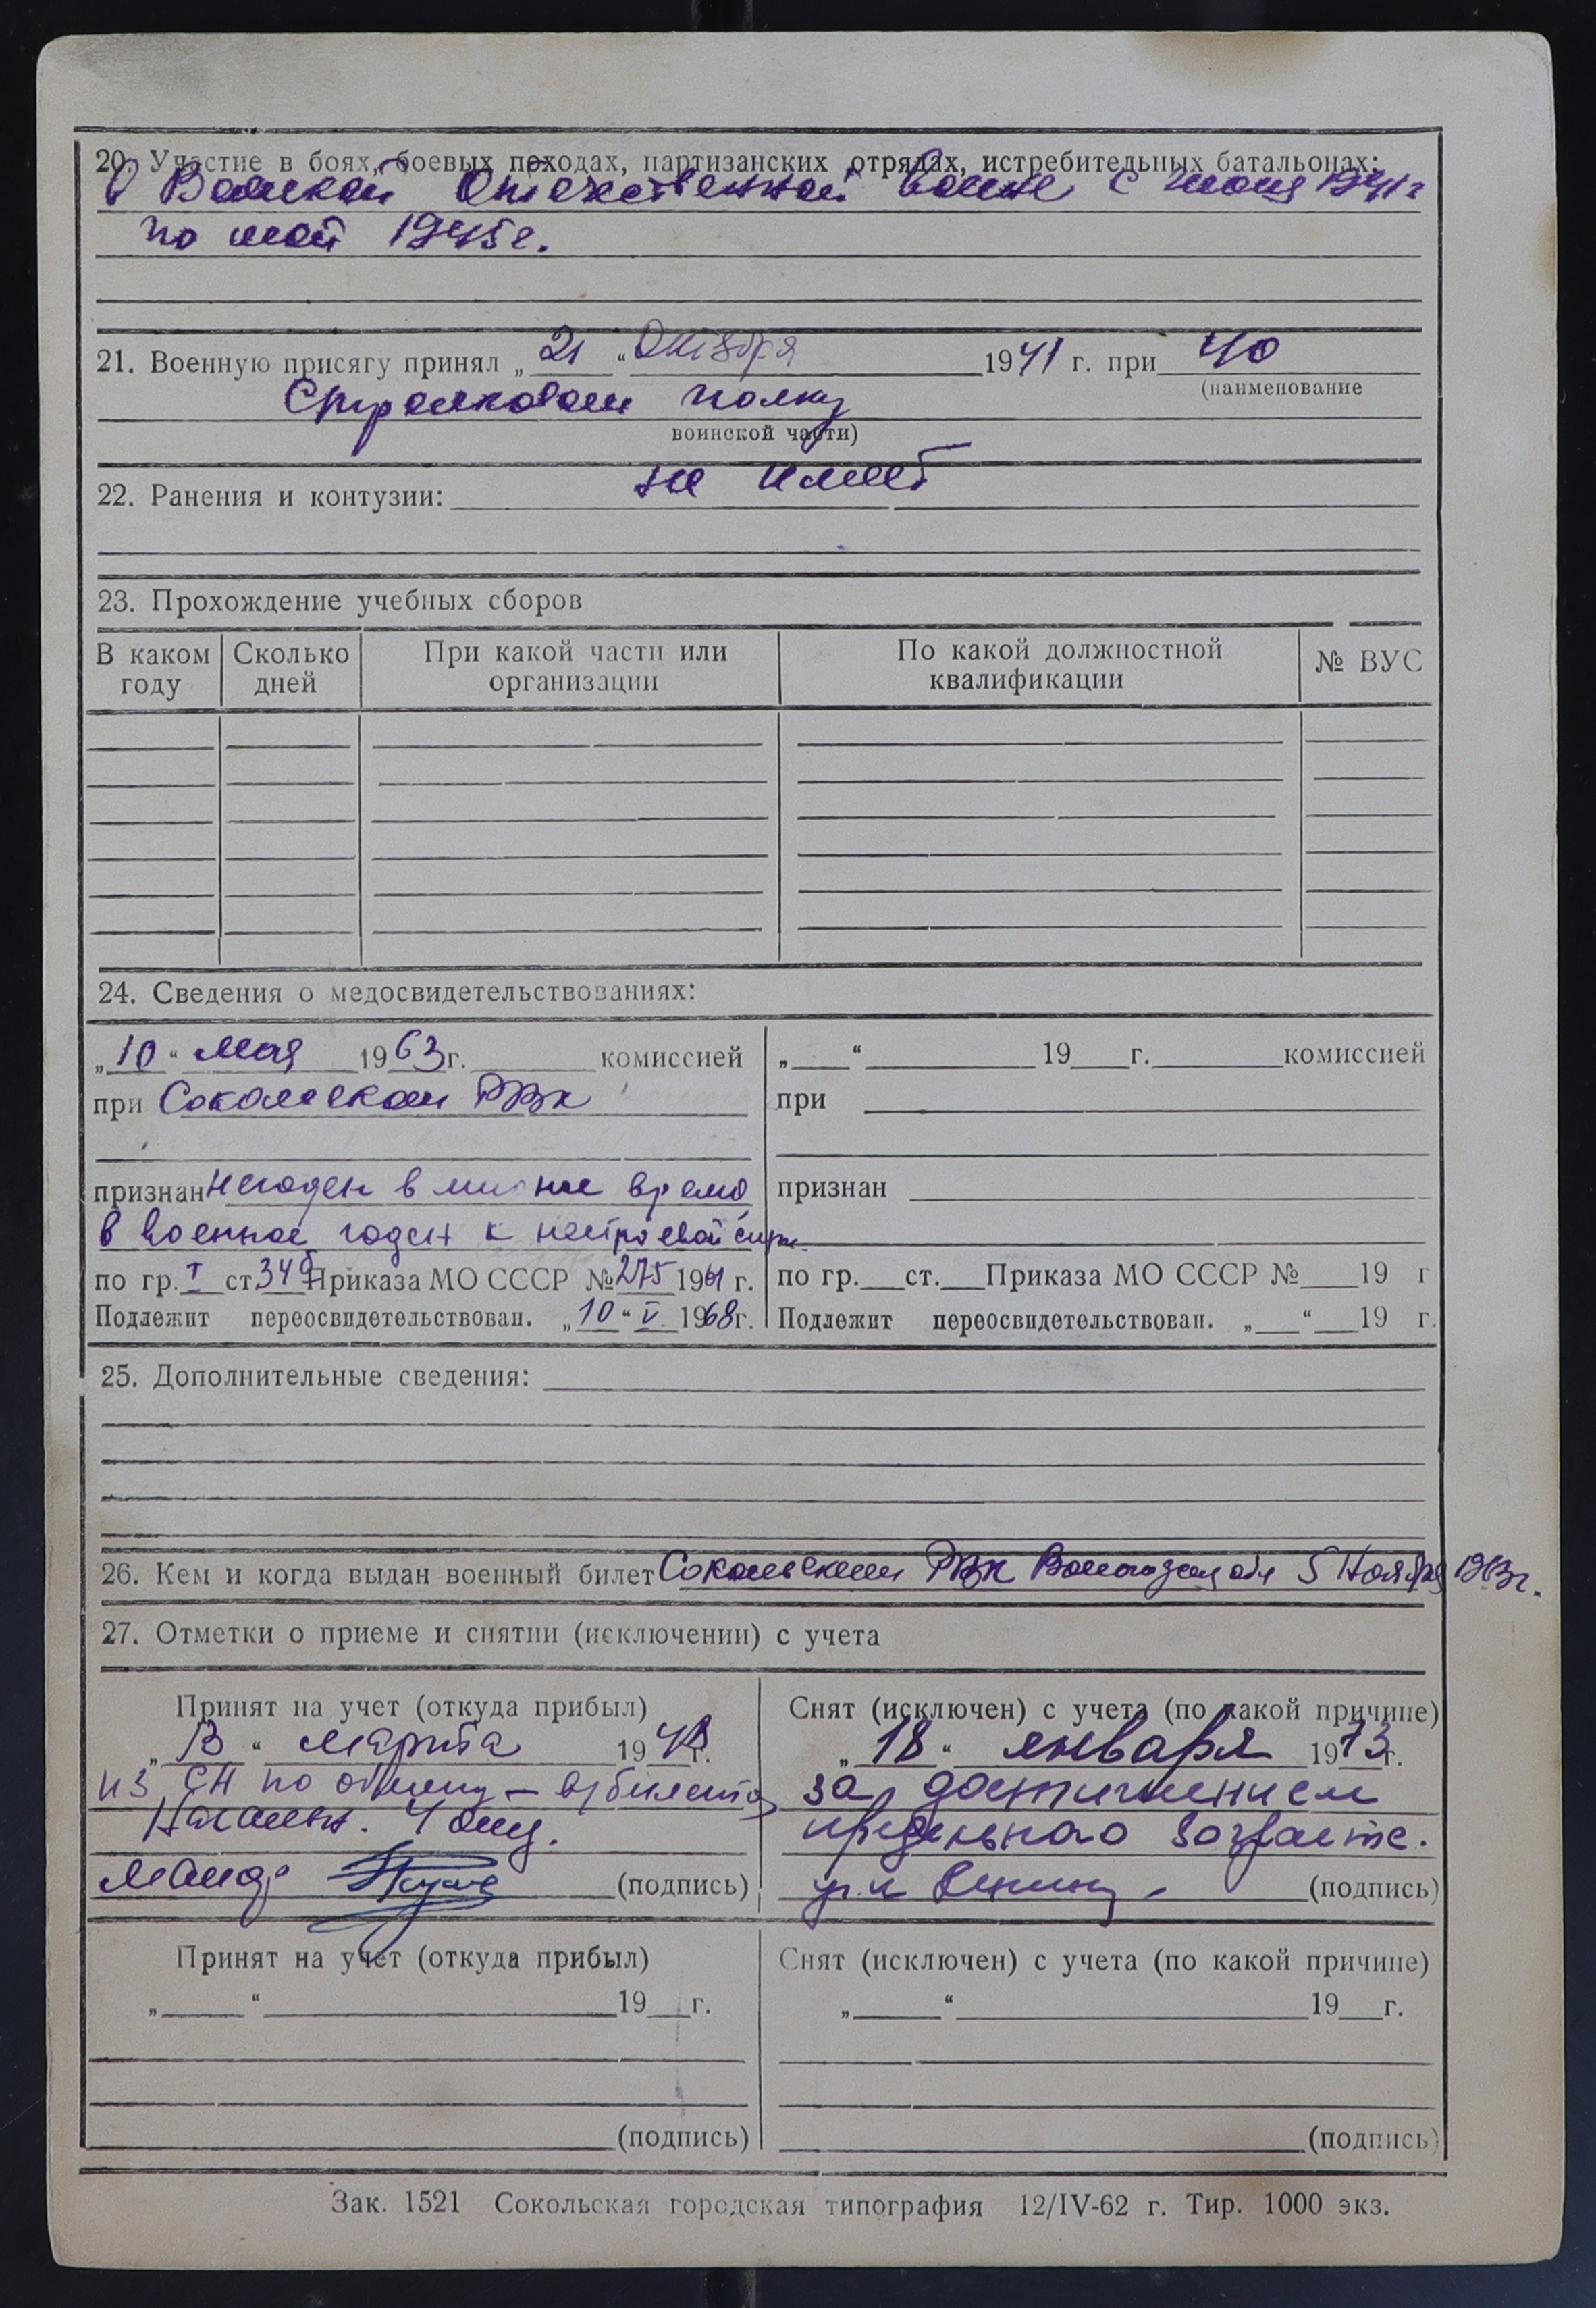 20. Участие в боях, боевых походах, партизанских отрядах, истребительных батальонах:
В Великой Отечественной войне с июня 1941г
по май 1945г.
21. Военную присягу принял „21 “ Октября 1941 г. при 40
(наименование
Стрелковом полку
воинской части)
22. Ранения и контузии: не имеет
23. Прохождение учебных сборов
В каком году Сколько дней При какой части или организации По какой должностной квалификации № ВУС
24. Сведения о медосвидетельствованиях:
„10“ мая 1963г. комиссией
при Сокольском РВК
признан негоден в мирное время
в военное годен к нестроевой
по гр. I ст. 34б Приказа МО СССР № 275 1961 г.
Подлежит переосвидетельствован. „10“ V. 1968г.
„ “ 19 г. комиссией
при
признан
по гр. ст. Приказа МО СССР № 19 г
Подлежит переосвидетельствован. „ “ 19 г.
25. Дополнительные сведения:
26. Кем и когда выдан военный билет Сокольским РВК обл 5 Ноября 1963г.
27. Отметки о приеме и снятии (исключении) с учета
Принят на учет (откуда прибыл)
„ “ марта 19 г.
из по обмену
(подпись)
Снят (исключен) с учета (по какой причине)
„18“ января 1973г.
за достижением
предельного возраста.
(подпись)
Принят на учет (откуда прибыл)
„ “ 19 г.
(подпись)
Снят (исключен) с учета (по какой причине)
„ “ 19 г.
(подпись)
Зак. 1521 Сокольская городская типография 12/IV-62 г. Тир. 1000 экз.